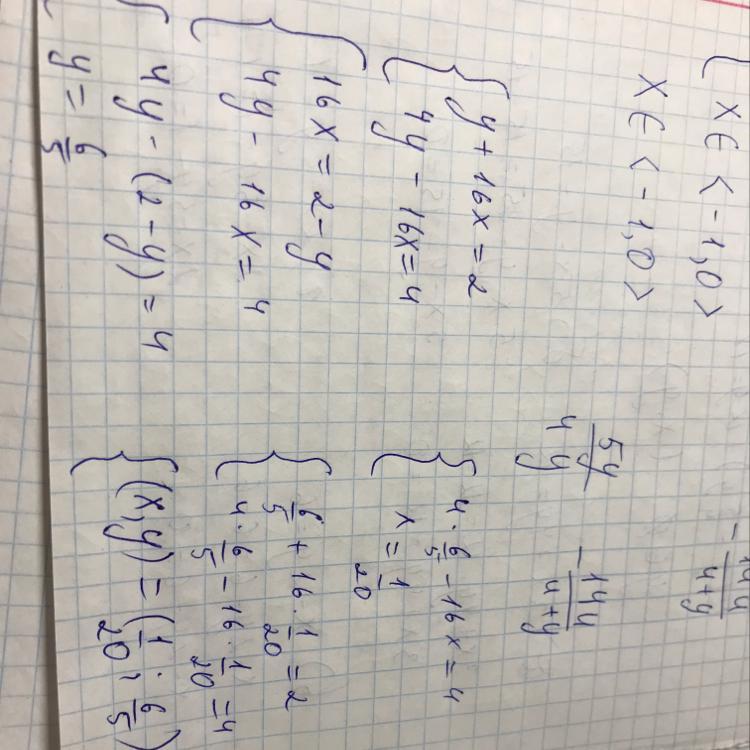 x ∈ <-1,0>
x ∈ <-1,0>
{ y + 16x = 2
4y - 16x = 4
{ 16x = 2 - y
4y - 16x = 4
{ 4y - (2 - y) = 4
y = 6/5
-14y/4+y
5y/4y
-14y/4+y
{ 4 · 6/5 - 16x = 4
x = 1/20
{ 6/5 + 16 · 1/20 = 2
4 · 6/5 - 16 · 1/20 = 4
{ (x,y) = (1/20 ; 6/5)